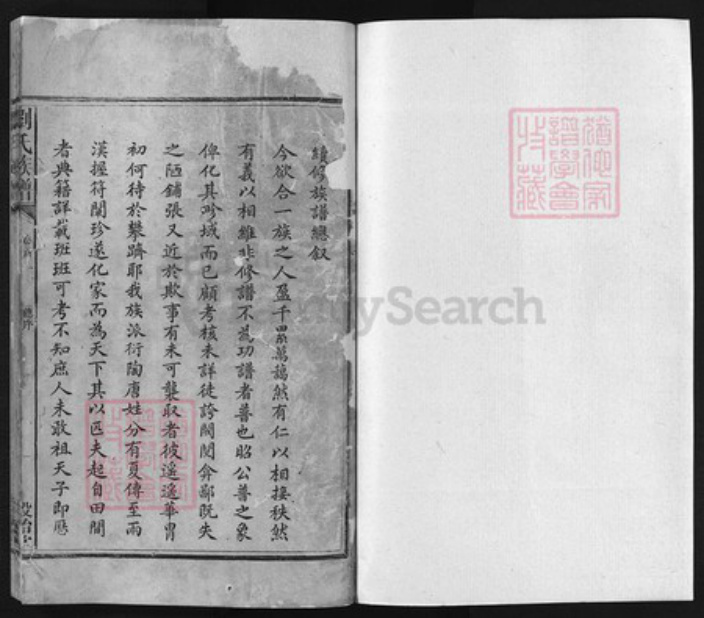 續修族譜總叙
今欲合一族之人盈千累萬藹然有仁以相接秩然
有義以相維非修譜不為功譜者普也昭公普之象
俾化其畛域而已顧考核未詳徒誇閥閱弇鄙既失
之陋鋪張又近於欺事有未可襲取者彼遙遙華胄
初何待於攀躋耶我族派衍陶唐姓分有夏傳至兩
漢握符闡珍遂化家而為天下其以匹夫起自田間
者典籍詳載班班可考不知庶人未敢祖天子即應
劉氏族譜
總序
猶他家
譜學會
收藏
FamilySearch